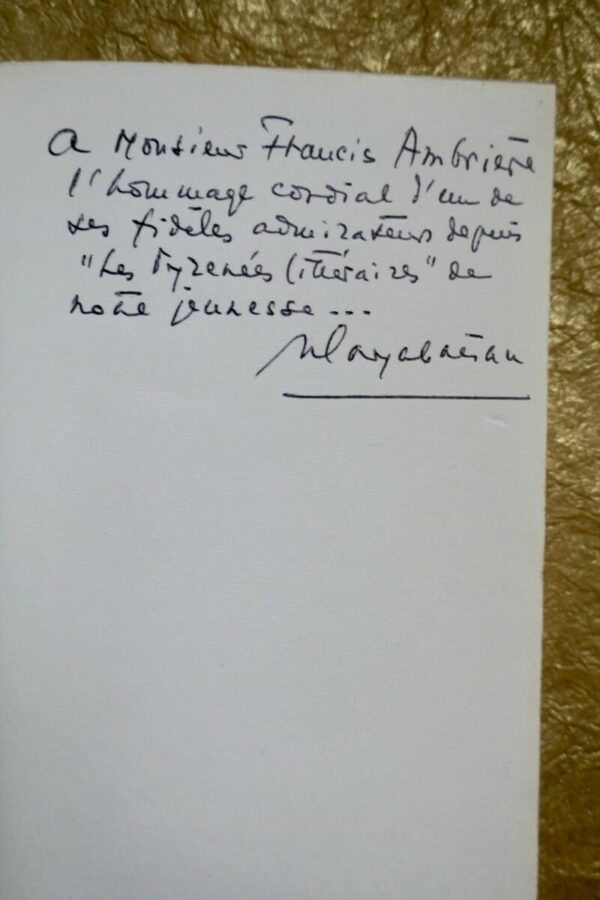 A Monsieur Francis Ambrière
l'hommage cordial d'un de
ses fidèles admirateurs depuis
"Les Pyrénées littéraires" de
notre jeunesse...